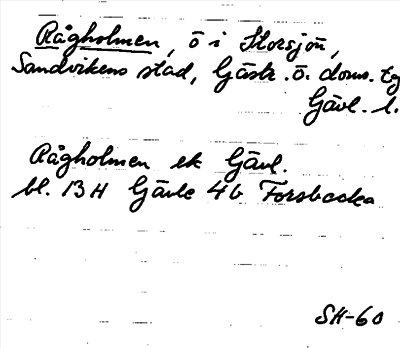 Rågholmen, ö i Storsjön,
Sandvikens stad, Gästr. ö. doms. tg
Gävl. l.
Rågholmen ek Gävl.
bl. 13 H Gävle 4b Forsbacka
SH-60